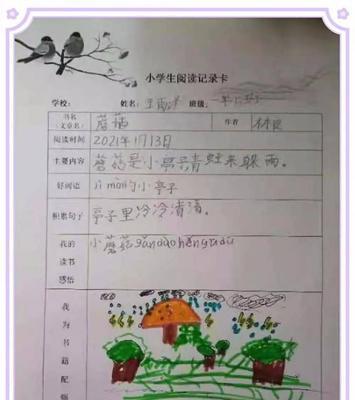 小学生阅读记录卡
学校： 姓名： 班级：
书名（文章名） 蘑菇 作者 林良
阅读时间 2021年1月13日
主要内容 蘑菇是小亭 青蛙来躲雨。
好词语 小亭子
积累句子 亭子里冷冷清清。
我的读书感悟 小蘑菇gǎndào
我为书籍配